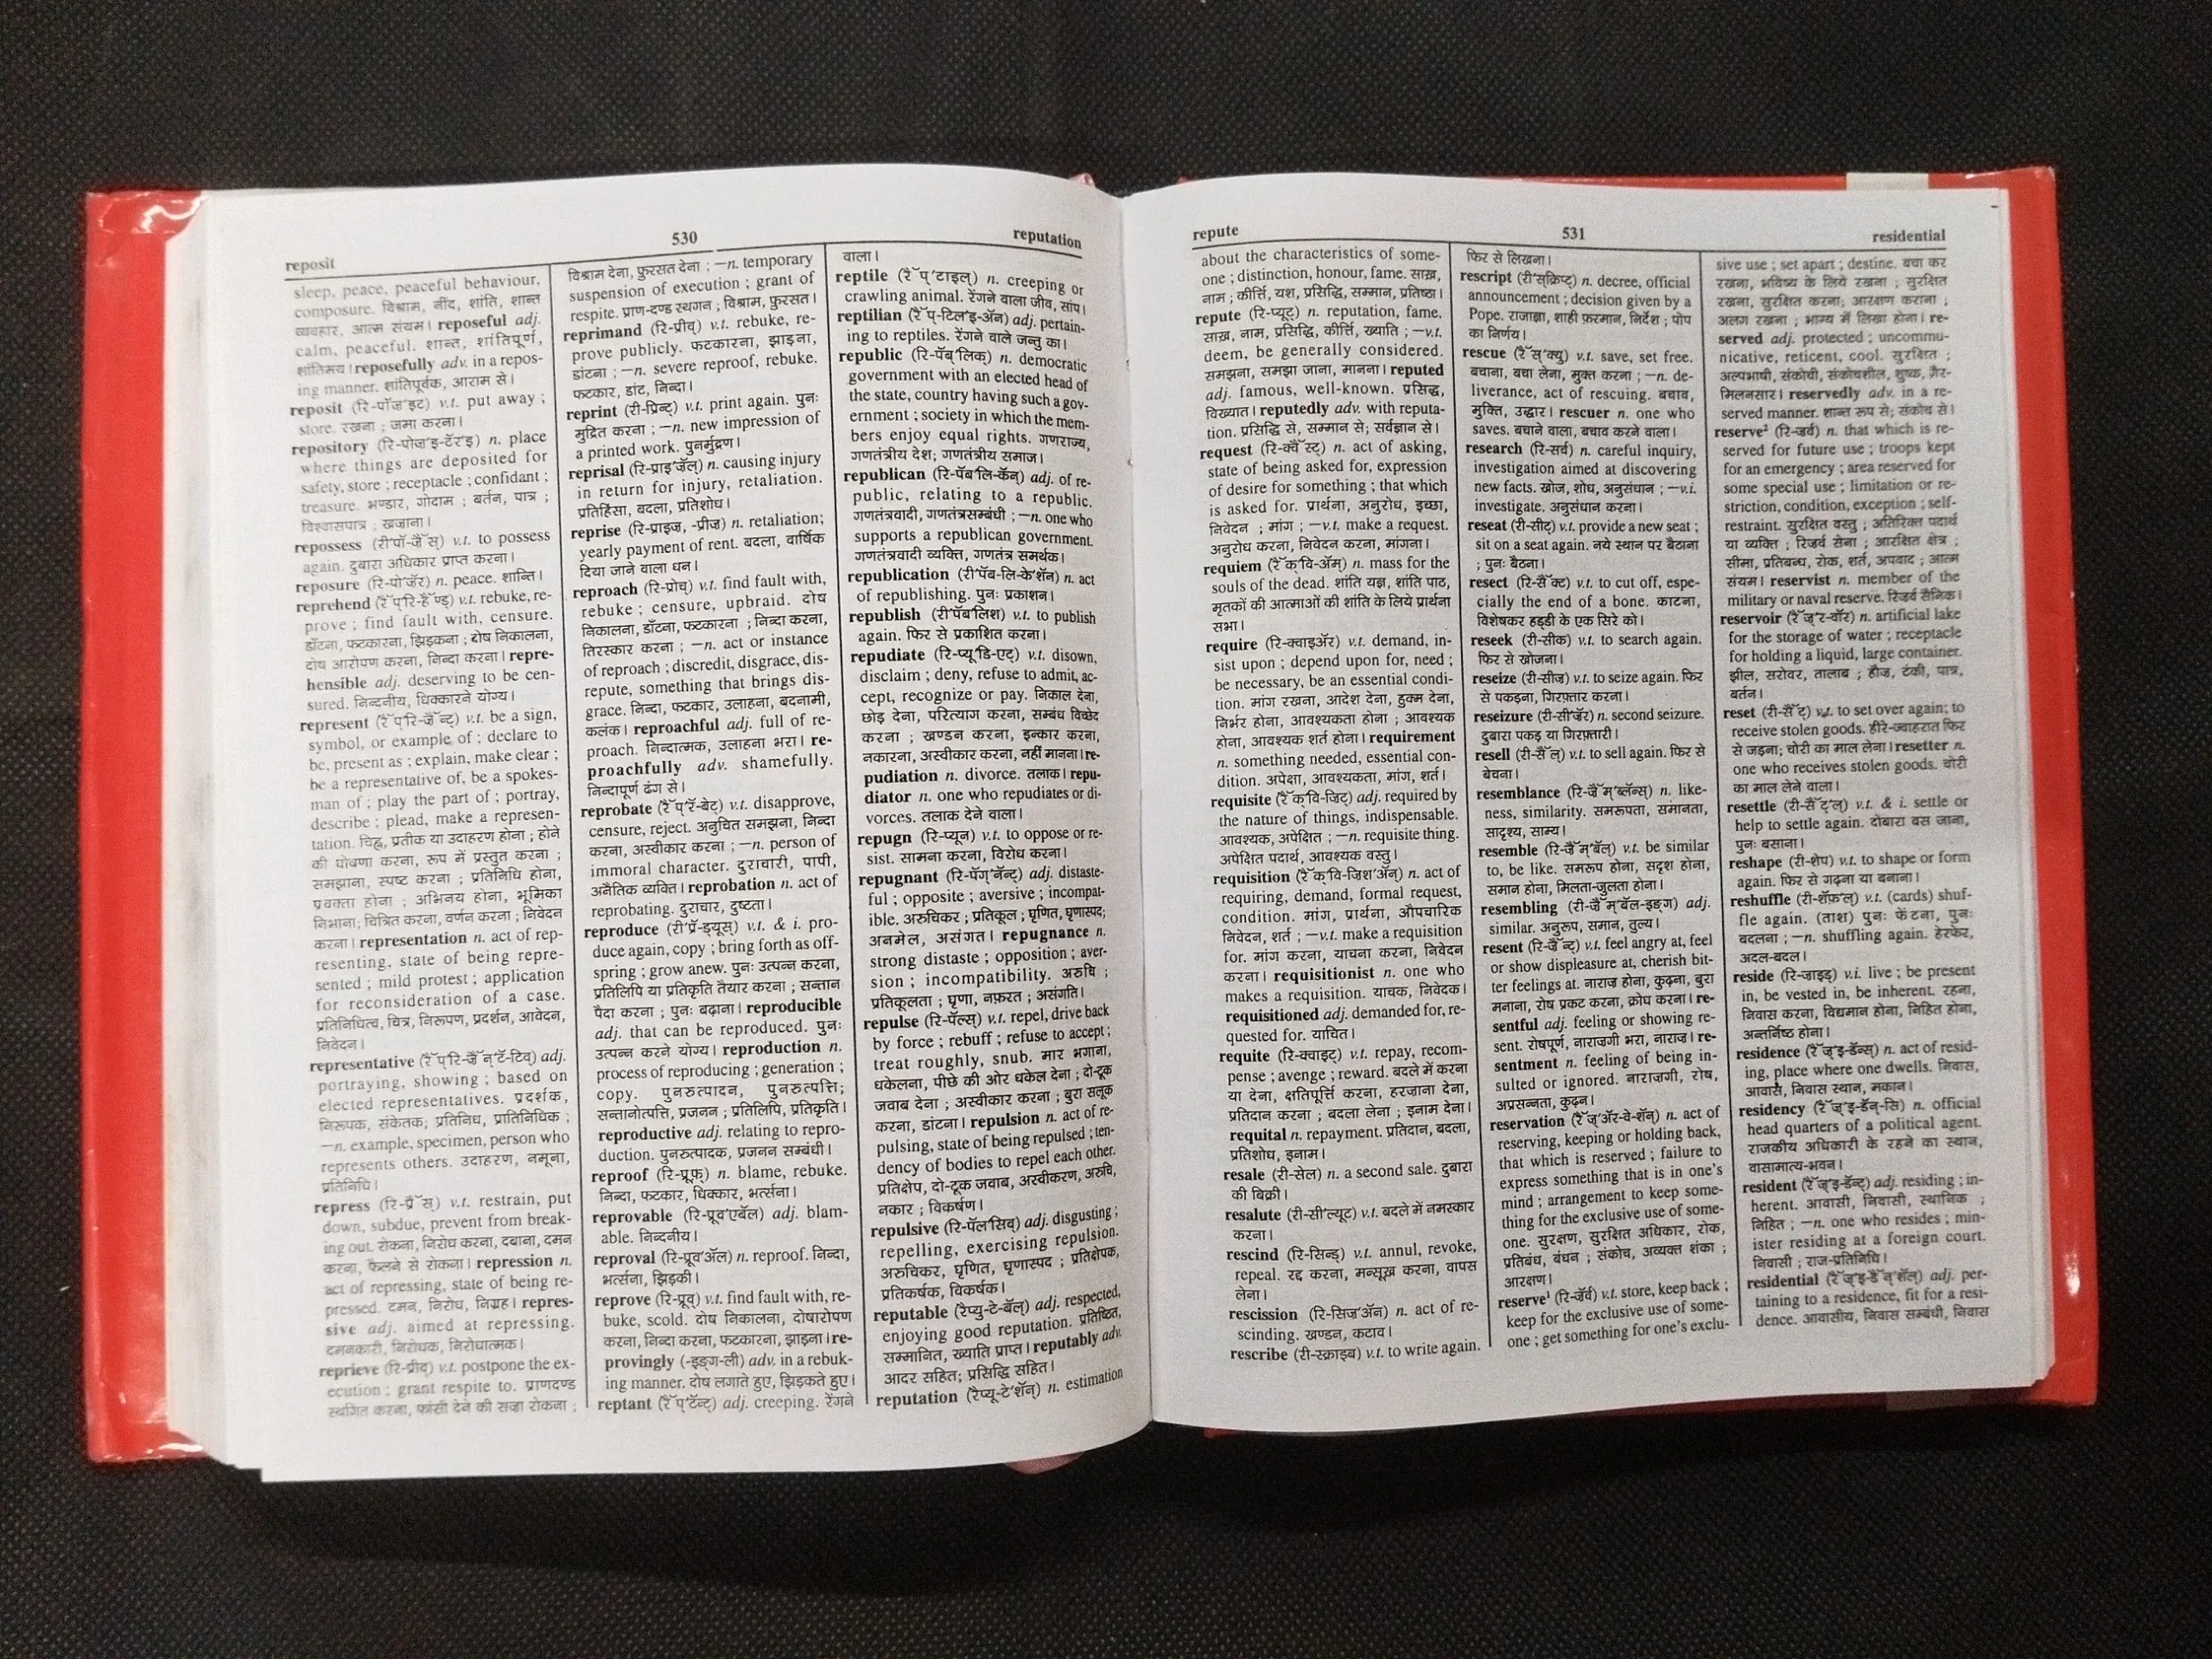 reposit
530
reputation
sleep, peace, peaceful behaviour,
composure. विश्राम, नींद, शांति, शान्त
व्यवहार, आत्म संयम। reposeful adj.
calm, peaceful. शान्त, शांतिपूर्ण,
शांतिमय। reposefully adv. in a repos-
ing manner. शांतिपूर्वक, आराम से।
reposit (रि-पॉज़'इट) v.t. put away ;
store. रखना ; जमा करना।
repository (रि-पोज़'इ-टॅर'इ) n. place
where things are deposited for
safety, store ; receptacle ; confidant ;
treasure. भण्डार, गोदाम ; बर्तन, पात्र ;
विश्वासपात्र ; खज़ाना।
repossess (री'पॉ-ज़ॅॅस्) v.t. to possess
again. दुबारा अधिकार प्राप्त करना।
reposure (रि-पो'जॅर) n. peace. शान्ति।
reprehend (रॅॅप्'रि-हॅॅण्ड्) v.t. rebuke, re-
prove ; find fault with, censure.
डाँटना, फटकारना, झिड़कना ; दोष निकालना,
दोष आरोपण करना, निन्दा करना। repre-
hensible adj. deserving to be cen-
sured. निन्दनीय, धिक्कारने योग्य।
represent (रॅॅप्'रि-ज़ॅॅन्ट्) v.t. be a sign,
symbol, or example of ; declare to
be, present as ; explain, make clear ;
be a representative of, be a spokes-
man of ; play the part of ; portray,
describe ; plead, make a represen-
tation. चिह्न, प्रतीक या उदाहरण होना ; होने
की घोषणा करना, रूप में प्रस्तुत करना ;
समझाना, स्पष्ट करना ; प्रतिनिधि होना,
प्रवक्ता होना ; अभिनय होना, भूमिका
निभाना; चित्रित करना, वर्णन करना ; निवेदन
करना। representation n. act of rep-
resenting, state of being repre-
sented ; mild protest ; application
for reconsideration of a case.
प्रतिनिधित्व, चित्र, निरूपण, प्रदर्शन, आवेदन,
निवेदन।
representative (रॅॅप्'रि-ज़ॅॅन्'टॅ-टिव्) adj.
portraying, showing ; based on
elected representatives. प्रदर्शक,
निरूपक, संकेतक; प्रतिनिध, प्रातिनिधिक ;
—n. example, specimen, person who
represents others. उदाहरण, नमूना,
प्रतिनिधि।
repress (रि-प्रॅॅस्) v.t. restrain, put
down, subdue, prevent from break-
ing out. रोकना, निरोध करना, दबाना, दमन
करना, फैलने से रोकना। repression n.
act of repressing, state of being re-
pressed. दमन, निरोध, निग्रह। repres-
sive adj. aimed at repressing.
दमनकारी, निरोधक, निरोधात्मक।
reprieve (रि-प्रीव्) v.t. postpone the ex-
ecution ; grant respite to. प्राणदण्ड
स्थगित करना, फांसी देने की सज़ा रोकना ;
विश्राम देना, फ़ुरसत देना ; —n. temporary
suspension of execution ; grant of
respite. प्राण-दण्ड स्थगन ; विश्राम, फ़ुरसत।
reprimand (रि-प्रीव्) v.t. rebuke, re-
prove publicly. फटकारना, झाड़ना,
डांटना ; —n. severe reproof, rebuke.
फटकार, डांट, निन्दा।
reprint (री-प्रिन्ट्) v.t. print again. पुनः
मुद्रित करना ; —n. new impression of
a printed work. पुनर्मुद्रण।
reprisal (रि-प्राइ'ज़ॅल्) n. causing injury
in return for injury, retaliation.
प्रतिहिंसा, बदला, प्रतिशोध।
reprise (रि-प्राइज़, -प्रीज़) n. retaliation;
yearly payment of rent. बदला, वार्षिक
दिया जाने वाला धन।
reproach (रि-प्रोच्) v.t. find fault with,
rebuke ; censure, upbraid. दोष
निकालना, डाँटना, फटकारना ; निन्दा करना,
तिरस्कार करना ; —n. act or instance
of reproach ; discredit, disgrace, dis-
repute, something that brings dis-
grace. निन्दा, फटकार, उलाहना, बदनामी,
कलंक। reproachful adj. full of re-
proach. निन्दात्मक, उलाहना भरा। re-
proachfully adv. shamefully.
निन्दापूर्ण ढंग से।
reprobate (रॅॅप्'रॅ-बेट्) v.t. disapprove,
censure, reject. अनुचित समझना, निन्दा
करना, अस्वीकार करना ; —n. person of
immoral character. दुराचारी, पापी,
अनैतिक व्यक्ति। reprobation n. act of
reprobating. दुराचार, दुष्टता।
reproduce (री'प्रॅ-ड्यूस्) v.t. & i. pro-
duce again, copy ; bring forth as off-
spring ; grow anew. पुनः उत्पन्न करना,
प्रतिलिपि या प्रतिकृति तैयार करना ; सन्तान
पैदा करना ; पुनः बढ़ाना। reproducible
adj. that can be reproduced. पुनः
उत्पन्न करने योग्य। reproduction n.
process of reproducing ; generation ;
copy. पुनरुत्पादन, पुनरुत्पत्ति;
सन्तानोत्पत्ति, प्रजनन ; प्रतिलिपि, प्रतिकृति।
reproductive adj. relating to repro-
duction. पुनरुत्पादक, प्रजनन सम्बंधी।
reproof (रि-प्रूफ़्) n. blame, rebuke.
निन्दा, फटकार, धिक्कार, भर्त्सना।
reprovable (रि-प्रूव'एबॅल) adj. blam-
able. निन्दनीय।
reproval (रि-प्रूव'ॲल) n. reproof. निन्दा,
भर्त्सना, झिड़की।
reprove (रि-प्रूव्) v.t. find fault with, re-
buke, scold. दोष निकालना, दोषारोपण
करना, निन्दा करना, फटकारना, झाड़ना। re-
provingly (-इङ्ग-ली) adv. in a rebuk-
ing manner. दोष लगाते हुए, झिड़कते हुए।
reptant (रॅॅप्'टॅन्ट्) adj. creeping. रेंगने
वाला।
reptile (रॅॅप्'टाइल्) n. creeping or
crawling animal. रेंगने वाला जीव, सांप।
reptilian (रॅॅप्-टिल'इ-ॲन) adj. pertain-
ing to reptiles. रेंगने वाले जन्तु का।
republic (रि-पॅब्'लिक्) n. democratic
government with an elected head of
the state, country having such a gov-
ernment ; society in which the mem-
bers enjoy equal rights. गणराज्य,
गणतंत्रीय देश; गणतंत्रीय समाज।
republican (रि-पॅब'लि-कॅन्) adj. of re-
public, relating to a republic.
गणतंत्रवादी, गणतंत्रसम्बंधी ; —n. one who
supports a republican government.
गणतंत्रवादी व्यक्ति, गणतंत्र समर्थक।
republication (री'पॅब-लि-के'शॅन) n. act
of republishing. पुनः प्रकाशन।
republish (री'पॅब'लिश) v.t. to publish
again. फिर से प्रकाशित करना।
repudiate (रि-प्यू'डि-एट्) v.t. disown,
disclaim ; deny, refuse to admit, ac-
cept, recognize or pay. निकाल देना,
छोड़ देना, परित्याग करना, सम्बंध विच्छेद
करना ; खण्डन करना, इन्कार करना,
नकारना, अस्वीकार करना, नहीं मानना। re-
pudiation n. divorce. तलाक। repu-
diator n. one who repudiates or di-
vorces. तलाक देने वाला।
repugn (रि-प्यून) v.t. to oppose or re-
sist. सामना करना, विरोध करना।
repugnant (रि-पॅग्'नॅन्ट्) adj. distaste-
ful ; opposite ; aversive ; incompat-
ible. अरुचिकर ; प्रतिकूल ; घृणित, घृणास्पद;
अनमेल, असंगत। repugnance n.
strong distaste ; opposition ; aver-
sion ; incompatibility. अरुचि ;
प्रतिकूलता ; घृणा, नफ़रत ; असंगति।
repulse (रि-पॅल्स्) v.t. repel, drive back
by force ; rebuff ; refuse to accept ;
treat roughly, snub. मार भगाना,
धकेलना, पीछे की ओर धकेल देना ; दो-टूक
जवाब देना ; अस्वीकार करना ; बुरा सलूक
करना, डांटना। repulsion n. act of re-
pulsing, state of being repulsed ; ten-
dency of bodies to repel each other.
प्रतिक्षेप, दो-टूक जवाब, अस्वीकरण, अरुचि,
नकार ; विकर्षण।
repulsive (रि-पॅल'सिव्) adj. disgusting ;
repelling, exercising repulsion.
अरुचिकर, घृणित, घृणास्पद ; प्रतिक्षेपक,
प्रतिकर्षक, विकर्षक।
reputable (रैप्यु-टे-बॅल्) adj. respected,
enjoying good reputation. प्रतिष्ठित,
सम्मानित, ख्याति प्राप्त। reputably adv.
आदर सहित; प्रसिद्धि सहित।
reputation (रैप्यू-टे'शॅन्) n. estimation
repute
531
residential
about the characteristics of some-
one ; distinction, honour, fame. साख़,
नाम ; कीर्त्ति, यश, प्रसिद्धि, सम्मान, प्रतिष्ठा।
repute (रि-प्यूट्) n. reputation, fame.
साख़, नाम, प्रसिद्धि, कीर्त्ति, ख्याति ; —v.t.
deem, be generally considered.
समझना, समझा जाना, मानना। reputed
adj. famous, well-known. प्रसिद्ध,
विख्यात। reputedly adv. with reputa-
tion. प्रसिद्धि से, सम्मान से; सर्वज्ञान से।
request (रि-क्वॅॅस्ट्) n. act of asking,
state of being asked for, expression
of desire for something ; that which
is asked for. प्रार्थना, अनुरोध, इच्छा,
निवेदन ; मांग ; —v.t. make a request.
अनुरोध करना, निवेदन करना, मांगना।
requiem (रॅॅक्'वि-ॲम्) n. mass for the
souls of the dead. शांति यज्ञ, शांति पाठ,
मृतकों की आत्माओं की शांति के लिये प्रार्थना
सभा।
require (रि-क्वाइॲर) v.t. demand, in-
sist upon ; depend upon for, need ;
be necessary, be an essential condi-
tion. मांग रखना, आदेश देना, हुक्म देना,
निर्भर होना, आवश्यकता होना ; आवश्यक
होना, आवश्यक शर्त होना। requirement
n. something needed, essential con-
dition. अपेक्षा, आवश्यकता, मांग, शर्त।
requisite (रॅॅक्'वि-ज़िट्) adj. required by
the nature of things, indispensable.
आवश्यक, अपेक्षित ; —n. requisite thing.
अपेक्षित पदार्थ, आवश्यक वस्तु।
requisition (रॅॅक्'वि-ज़िश'ॲन्) n. act of
requiring, demand, formal request,
condition. मांग, प्रार्थना, औपचारिक
निवेदन, शर्त ; —v.t. make a requisition
for. मांग करना, याचना करना, निवेदन
करना। requisitionist n. one who
makes a requisition. याचक, निवेदक।
requisitioned adj. demanded for, re-
quested for. याचित।
requite (रि-क्वाइट्) v.t. repay, recom-
pense ; avenge ; reward. बदले में करना
या देना, क्षतिपूर्त्ति करना, हरजाना देना,
प्रतिदान करना ; बदला लेना ; इनाम देना।
requital n. repayment. प्रतिदान, बदला,
प्रतिशोध, इनाम।
resale (रि-सेल) n. a second sale. दुबारा
की बिक्री।
resalute (री-सी'ल्यूट) v.t. बदले में नमस्कार
करना।
rescind (रि-सिन्ड्) v.t. annul, revoke,
repeal. रद्द करना, मन्सूख़ करना, वापस
लेना।
rescission (रि-सिज़'ॲन) n. act of re-
scinding. खण्डन, कटाव।
rescribe (री-स्क्राइब) v.t. to write again.
फिर से लिखना।
rescript (री'स्क्रिप्ट्) n. decree, official
announcement ; decision given by a
Pope. राजाज्ञा, शाही फ़रमान, निर्देश ; पोप
का निर्णय।
rescue (रॅॅस्'क्यु) v.t. save, set free.
बचाना, बचा लेना, मुक्त करना ; —n. de-
liverance, act of rescuing. बचाव,
मुक्ति, उद्धार। rescuer n. one who
saves. बचाने वाला, बचाव करने वाला।
research (रि-सर्च) n. careful inquiry,
investigation aimed at discovering
new facts. खोज, शोध, अनुसंधान ; —v.i.
investigate. अनुसंधान करना।
reseat (री-सीट्) v.t. provide a new seat ;
sit on a seat again. नये स्थान पर बैठाना
; पुनः बैठना।
resect (रि-सॅॅक्ट) v.t. to cut off, espe-
cially the end of a bone. काटना,
विशेषकर हड्डी के एक सिरे को।
reseek (री-सीक) v.t. to search again.
फिर से खोजना।
reseize (री-सीज़) v.t. to seize again. फिर
से पकड़ना, गिरफ़्तार करना।
reseizure (री-सीज़ॅर) n. second seizure.
दुबारा पकड़ या गिरफ़्तारी।
resell (री-सॅॅल्) v.t. to sell again. फिर से
बेचना।
resemblance (रि-ज़ॅॅम्'ब्लॅन्स्) n. like-
ness, similarity. समरूपता, समानता,
सादृश्य, साम्य।
resemble (रि-ज़ॅॅम्'बॅल्) v.t. be similar
to, be like. समरूप होना, सदृश होना,
समान होना, मिलता-जुलता होना।
resembling (री-ज़ॅॅम्'बॅल-इङ्ग) adj.
similar. अनुरूप, समान, तुल्य।
resent (रि-ज़ॅॅन्ट्) v.t. feel angry at, feel
or show displeasure at, cherish bit-
ter feelings at. नाराज़ होना, कुढ़ना, बुरा
मनाना, रोष प्रकट करना, क्रोध करना। re-
sentful adj. feeling or showing re-
sent. रोषपूर्ण, नाराज़गी भरा, नाराज़। re-
sentment n. feeling of being in-
sulted or ignored. नाराज़गी, रोष,
अप्रसन्नता, कुढ़न।
reservation (रॅॅज़्'ॲर-वे-शॅन्) n. act of
reserving, keeping or holding back,
that which is reserved ; failure to
express something that is in one's
mind ; arrangement to keep some-
thing for the exclusive use of some-
one. सुरक्षण, सुरक्षित अधिकार, रोक,
प्रतिबंध, बंधन ; संकोच, अव्यक्त शंका ;
आरक्षण।
reserve¹ (रि-ज़ॅर्व) v.t. store, keep back ;
keep for the exclusive use of some-
one ; get something for one's exclu-
sive use ; set apart ; destine. बचा कर
रखना, भविष्य के लिये रखना ; सुरक्षित
रखना, सुरक्षित करना; आरक्षण कराना ;
अलग रखना ; भाग्य में लिखा होना। re-
served adj. protected ; uncommu-
nicative, reticent, cool. सुरक्षित ;
अल्पभाषी, संकोची, संकोचशील, शुष्क, ग़ैर-
मिलनसार। reservedly adv. in a re-
served manner. शान्त रूप से; संकोच से।
reserve² (रि-ज़र्व) n. that which is re-
served for future use ; troops kept
for an emergency ; area reserved for
some special use ; limitation or re-
striction, condition, exception ; self-
restraint. सुरक्षित वस्तु ; अतिरिक्त पदार्थ
या व्यक्ति ; रिज़र्व सेना ; आरक्षित क्षेत्र ;
सीमा, प्रतिबन्ध, रोक, शर्त, अपवाद ; आत्म
संयम। reservist n. member of the
military or naval reserve. रिज़र्व सैनिक।
reservoir (रॅॅज़्'र-वॉर) n. artificial lake
for the storage of water ; receptacle
for holding a liquid, large container.
झील, सरोवर, तालाब ; हौज़, टंकी, पात्र,
बर्तन।
reset (री-सॅॅट्) v.t. to set over again; to
receive stolen goods. हीरे-ज्वाहरात फिर
से जड़ना; चोरी का माल लेना। resetter n.
one who receives stolen goods. चोरी
का माल लेने वाला।
resettle (री-सॅॅट्'ल्) v.t. & i. settle or
help to settle again. दोबारा बस जाना,
पुनः बसाना।
reshape (री-शेप) v.t. to shape or form
again. फिर से गढ़ना या बनाना।
reshuffle (री-शॅफ़'ल्) v.t. (cards) shuf-
fle again. (ताश) पुनः फेंटना, पुनः
बदलना ; —n. shuffling again. हेरफेर,
अदल-बदल।
reside (रि-ज़ाइड्) v.i. live ; be present
in, be vested in, be inherent. रहना,
निवास करना, विद्यमान होना, निहित होना,
अन्तर्निष्ट होना।
residence (रॅॅज़्'इ-डॅन्स्) n. act of resid-
ing, place where one dwells. निवास,
आवास, निवास स्थान, मकान।
residency (रॅॅज़्'इ-डॅन्-सि) n. official
head quarters of a political agent.
राजकीय अधिकारी के रहने का स्थान,
वासामात्य-भवन।
resident (रॅॅज़्'इ-डॅन्ट्) adj. residing ; in-
herent. आवासी, निवासी, स्थानिक ;
निहित ; —n. one who resides ; min-
ister residing at a foreign court.
निवासी ; राज-प्रतिनिधि।
residential (रॅॅज़्'इ-डॅॅन्'शॅल्) adj. per-
taining to a residence, fit for a resi-
dence. आवासीय, निवास सम्बंधी, निवास